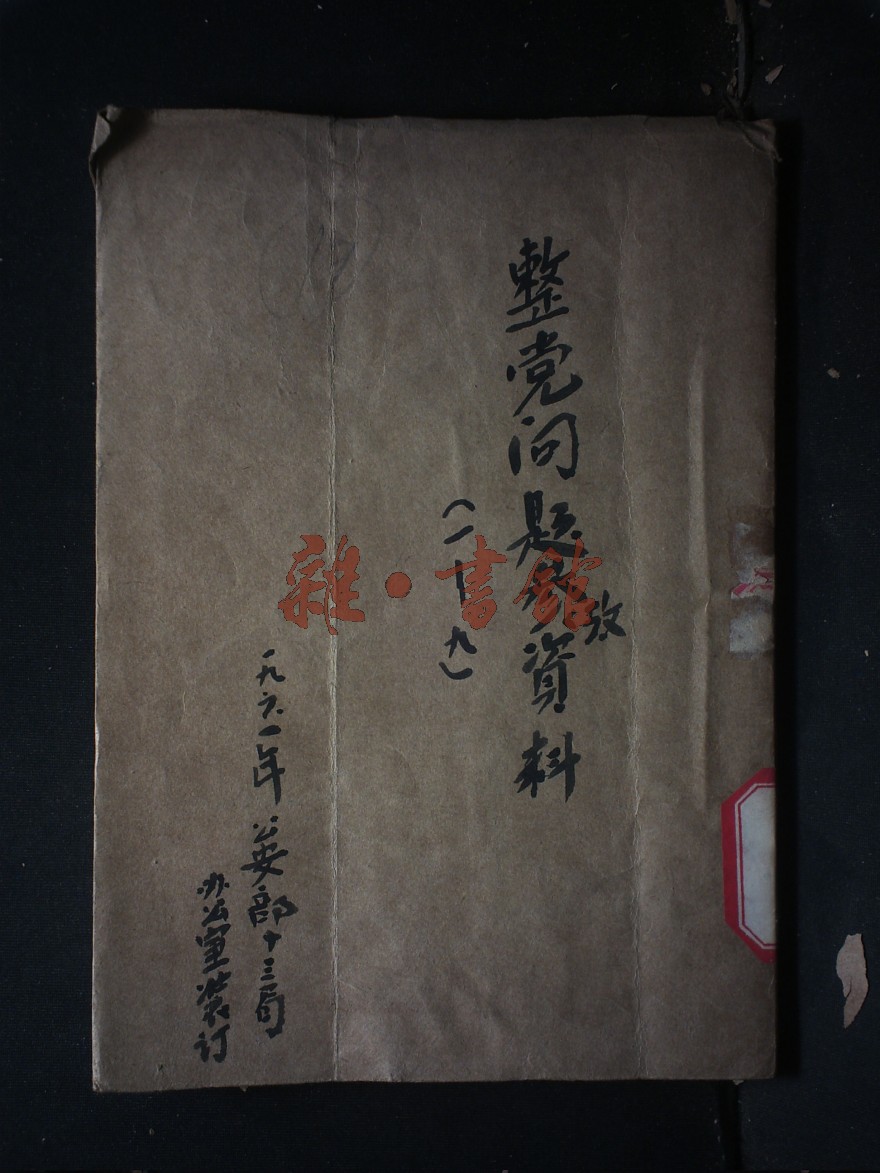 整党问题参資料
攷
(一—九)
一九六一年 公安部十三局
办公室装订
雜·書館